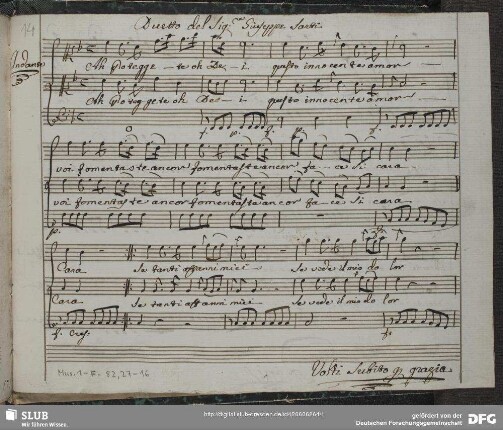 Duetto del Sigre Giuseppe Sarti.
Andante
Ah protegge - te oh De - i questo innocente amor
Ah protegete oh De - i questo innocente amor
f. p. f. p. f.
voi fomentaste ancor fomentaste ancor fa - ce si cara
voi fomentaste ancor fomentaste ancor fa - ce si cara
p.
Cara Se tanti affanni miei Se vede il mio do lor
Cara Se tanti affanni miei Se vede il mio do lor
f. Cres: f.
Volti Subitto p grazia
Mus. 1-F-82,27-16
SLUB
Wir führen Wissen.
gefördert von der
Deutschen Forschungsgemeinschaft
DFG